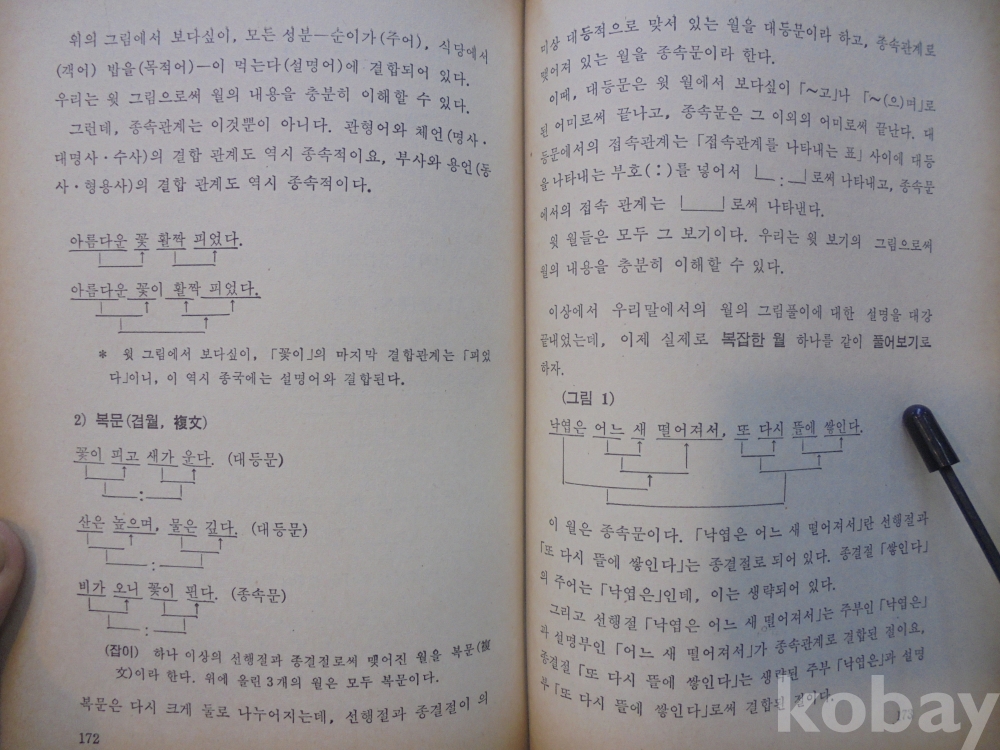 위의 그림에서 보다싶이, 모든 성분―순이가(주어), 식당에서
(객어) 밥을(목적어)―이 먹는다(설명어)에 결합되어 있다.
우리는 윗 그림으로써 월의 내용을 충분히 이해할 수 있다.
그런데, 종속관계는 이것뿐이 아니다. 관형어와 체언(명사·
대명사·수사)의 결합 관계도 역시 종속적이요, 부사와 용언(동
사·형용사)의 결합 관계도 역시 종속적이다.
아름다운 꽃 활짝 피었다.
아름다운 꽃이 활짝 피었다.
* 윗 그림에서 보다싶이, 「꽃이」의 마지막 결합관계는 「피었
다」이니, 이 역시 종국에는 설명어와 결합된다.
2) 복문(겹월, 複文)
꽃이 피고 새가 운다. (대등문)
:
산은 높으며, 물은 깊다. (대등문)
:
비가 오니 꽃이 핀다. (종속문)
:
(잡이) 하나 이상의 선행절과 종결절로써 맺어진 월을 복문(複
文)이라 한다. 위에 올린 3개의 월은 모두 복문이다.
복문은 다시 크게 둘로 나누어지는데, 선행절과 종결절이 의
172
미상 대등적으로 맞서 있는 월을 대등문이라 하고, 종속관계로
맺어져 있는 월을 종속문이라 한다.
이때, 대등문은 윗 월에서 보다싶이 「~고」나 「~(으)며」로
된 어미로써 끝나고, 종속문은 그 이외의 어미로써 끝난다. 대
등문에서의 접속관계는 「접속관계를 나타내는 표」 사이에 대등
을 나타내는 부호(:)를 넣어서 : 로써 나타내고, 종속문
에서의 접속 관계는 로써 나타낸다.
윗 월들은 모두 그 보기이다. 우리는 윗 보기의 그림으로써
월의 내용을 충분히 이해할 수 있다.
이상에서 우리말에서의 월의 그림풀이에 대한 설명을 대강
끝내었는데, 이제 실제로 복잡한 월 하나를 같이 풀어보기로
하자.
(그림 1)
낙엽은 어느 새 떨어져서, 또 다시 뜰에 쌓인다.
이 월은 종속문이다. 「낙엽은 어느 새 떨어져서」란 선행절과
「또 다시 뜰에 쌓인다」는 종결절로 되어 있다. 종결절 「쌓인다」
의 주어는 「낙엽은」인데, 이는 생략되어 있다.
그리고 선행절 「낙엽은 어느 새 떨어져서」는 주부인 「낙엽은」
과 설명부인 「어느 새 떨어져서」가 종속관계로 결합된 절이요,
종결절 「또 다시 뜰에 쌓인다」는 생략된 주부 「낙엽은」과 설명
부 「또 다시 뜰에 쌓인다」로써 결합된 절이다.
173
kobay